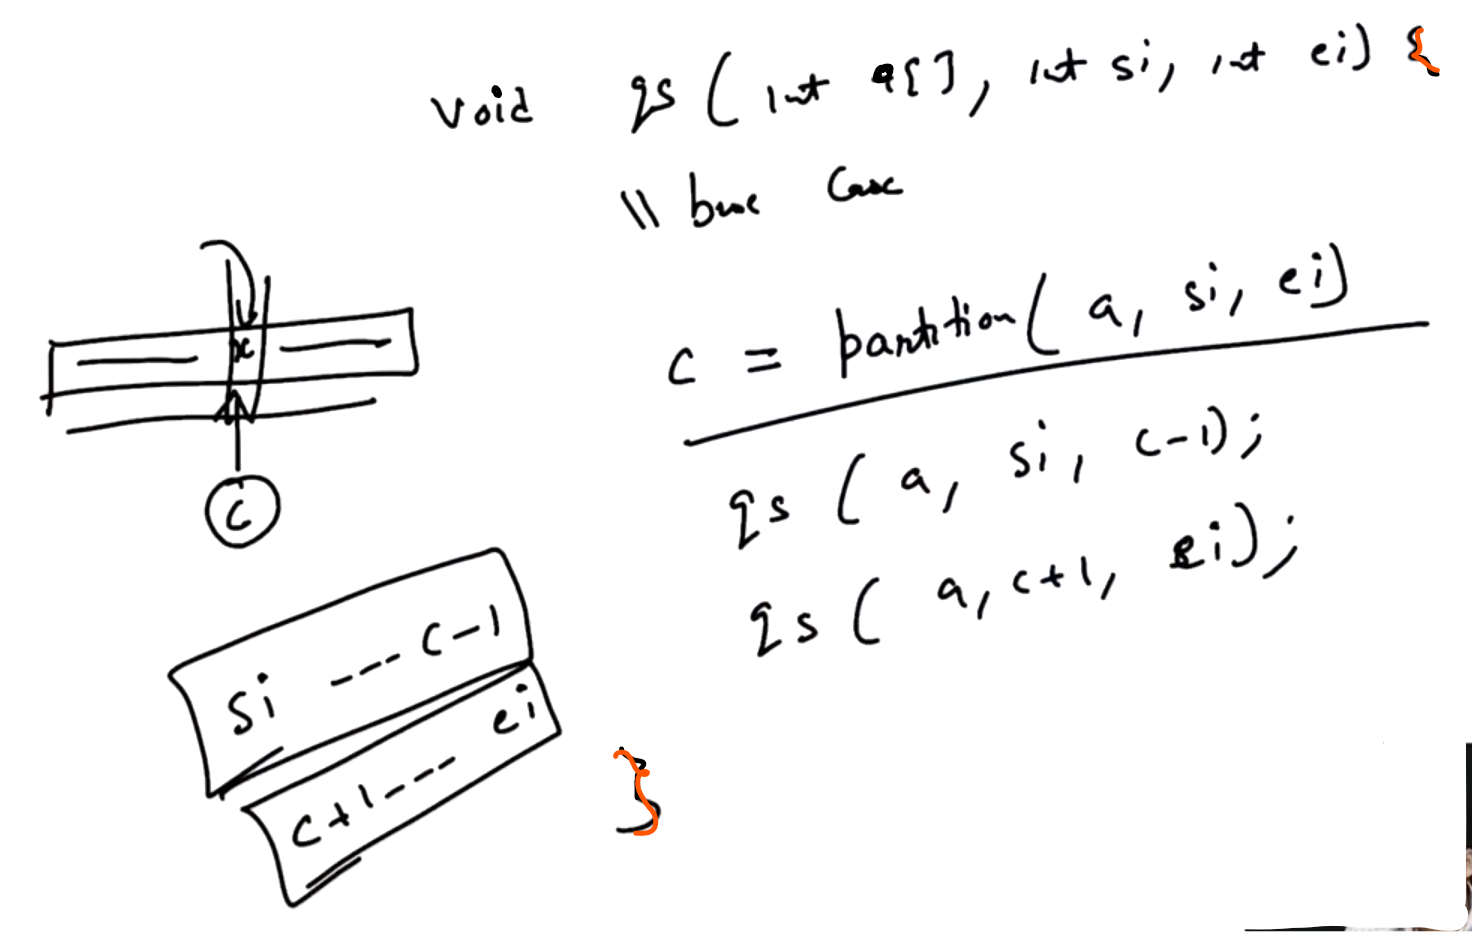 void qs ( int a[], int si, int ei) {
\\ base Case
c = partition( a, si, ei)
qs ( a, si, c-1);
qs ( a, c+1, ei);
}
x
c
si ---- c-1
c+1---- ei